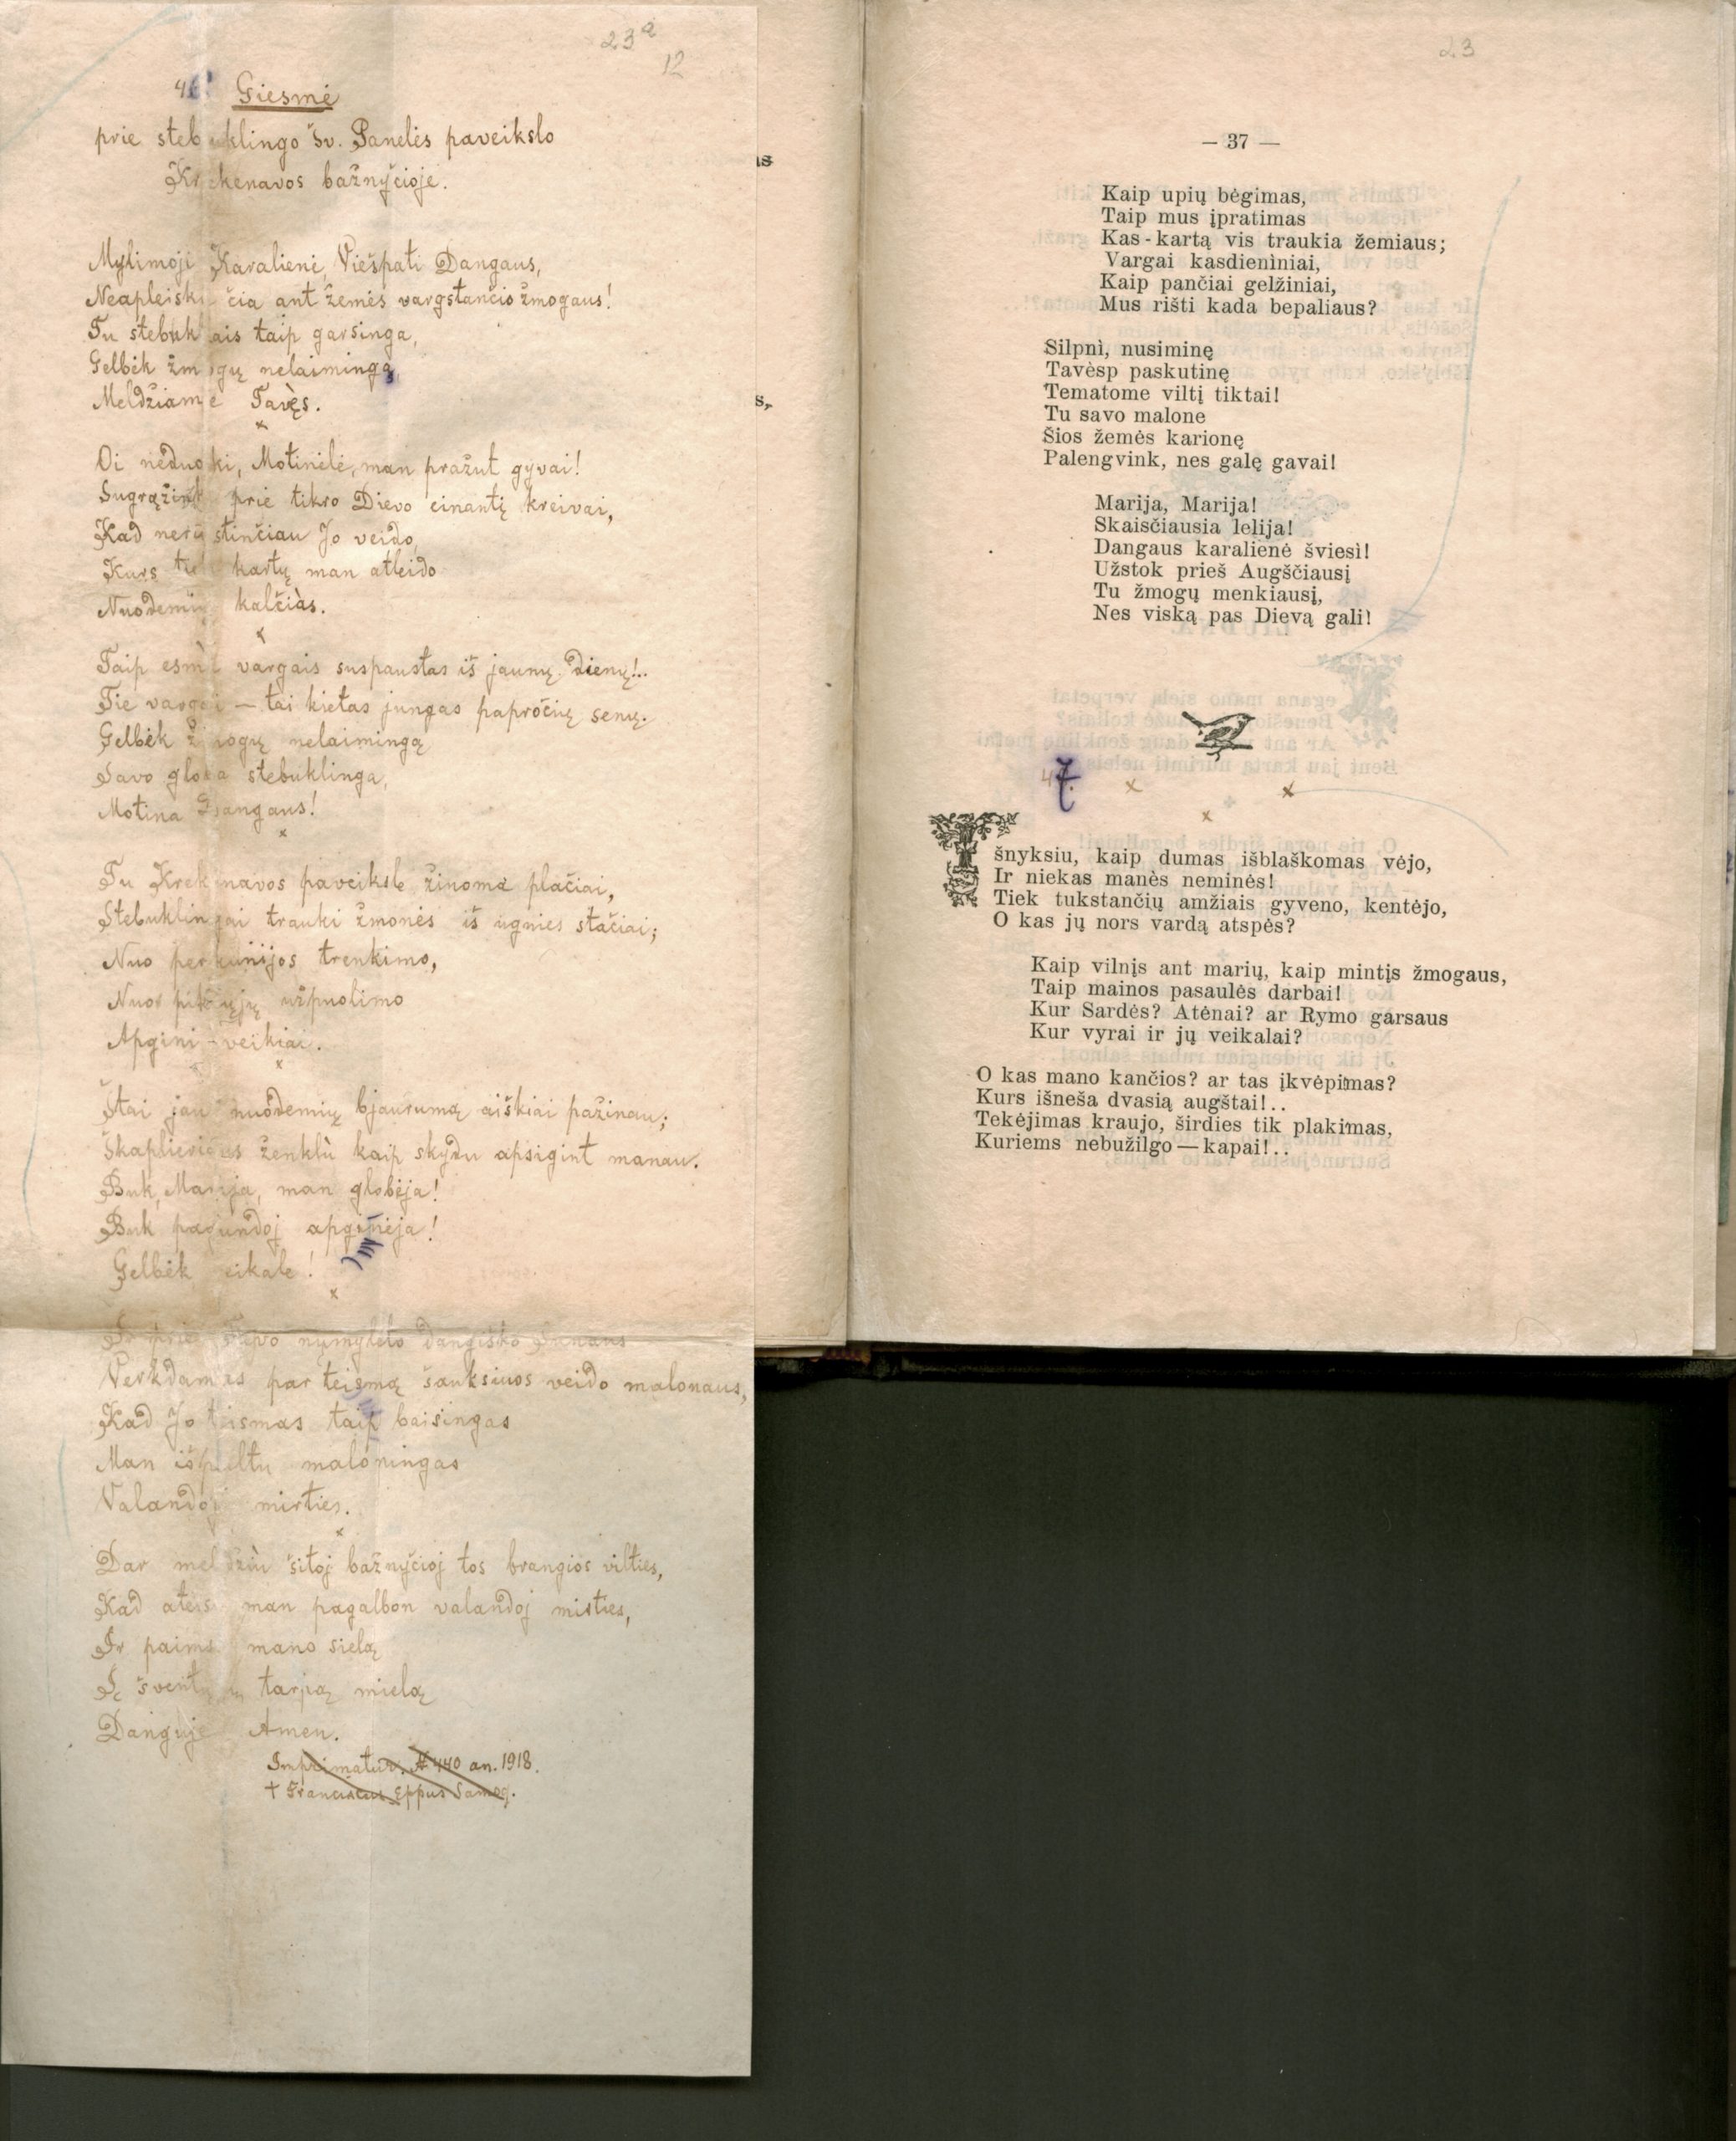 23a
12
46. Giesmė
prie stebuklingo Šv. Panelės paveikslo
Krekenavos bažnyčioje.
Mylimoji Karalienė, Viešpati Dangaus,
Neapleiski čia ant žemės vargstančio žmogaus!
Tu stebuklais taip garsinga,
Gelbėk žmogų nelaimingą
Meldžiame Tavęs.
×
Oi neduoki, Motinėlė, man pražut gyvai!
Sugrąžink prie tikro Dievo einantį kreivai,
Kad nerustinčiau Jo veido,
Kurs tiek kartų man atleido
Nuodemių kalčiàs.
×
Taip esmi vargais suspaustas iš jaunų dienų!..
Tie vargai — tai kietas jungas papročių senų.
Gelbėk žmogų nelaimingą
Savo globa stebuklinga,
Motina Dangaus!
×
Tu Krekenavos paveiksle žinoma plačiai,
Stebuklingai trauki žmonės iš ugnies stačiai;
Nuo perkunijos trenkimo,
Nuo piktųjų užpuolimo
Apgini - veikiai.
×
Štai jau nuodemių bjaurumą aiškiai pažinau;
Škaplierizus ženklù kaip skydu apsigint manau.
Buk, Marija, man globėja!
Buk pagundoj apginėja!
Gelbėk eikale!
×
Ir prie Tavo numylėto dangiško Sunaus
Verkdamas par teismą šauksiuos veido malonaus,
Kad Jo teismas taip baisingas
Man išpultų maloningas
Valandoj mirties.
×
Dar meldžiu šitoj bažnyčioj tos brangios vilties,
Kad ateisi man pagalbon valandoj mirties,
Ir paimsi mano sielą
Į šventųjų tarpą mielą
Danguje Amen.
Imprimatur. № 440 an. 1918.
† Franciscus Eppus Samog.
as
s,
23
— 37 —
Kaip upių bėgimas,
Taip mus įpratimas
Kas-kartą vis traukia žemiaus;
Vargai kasdieniniai,
Kaip pančiai gelžiniai,
Mus rišti kada bepaliaus?
Silpnì, nusiminę
Tavėsp paskutinę
Tematome viltį tiktai!
Tu savo malone
Šios žemės karionę
Palengvink, nes galę gavai!
Marija, Marija!
Skaisčiausia lelija!
Dangaus karalienė šviesì!
Užstok prieš Augščiausį
Tu žmogų menkiausį,
Nes viską pas Dievą gali!
47.
× × ×
Išnyksiu, kaip dumas išblaškomas vėjo,
Ir niekas manès neminės!
Tiek tukstančių amžiais gyveno, kentėjo,
O kas jų nors vardą atspės?
Kaip vilnįs ant marių, kaip mintįs žmogaus,
Taip mainos pasaulės darbai!
Kur Sardės? Atėnai? ar Rymo garsaus
Kur vyrai ir jų veikalai?
O kas mano kančios? ar tas įkvėpimas?
Kurs išneša dvasią augštai!..
Tekėjimas kraujo, širdies tik plakimas,
Kuriems nebužilgo — kapai!..